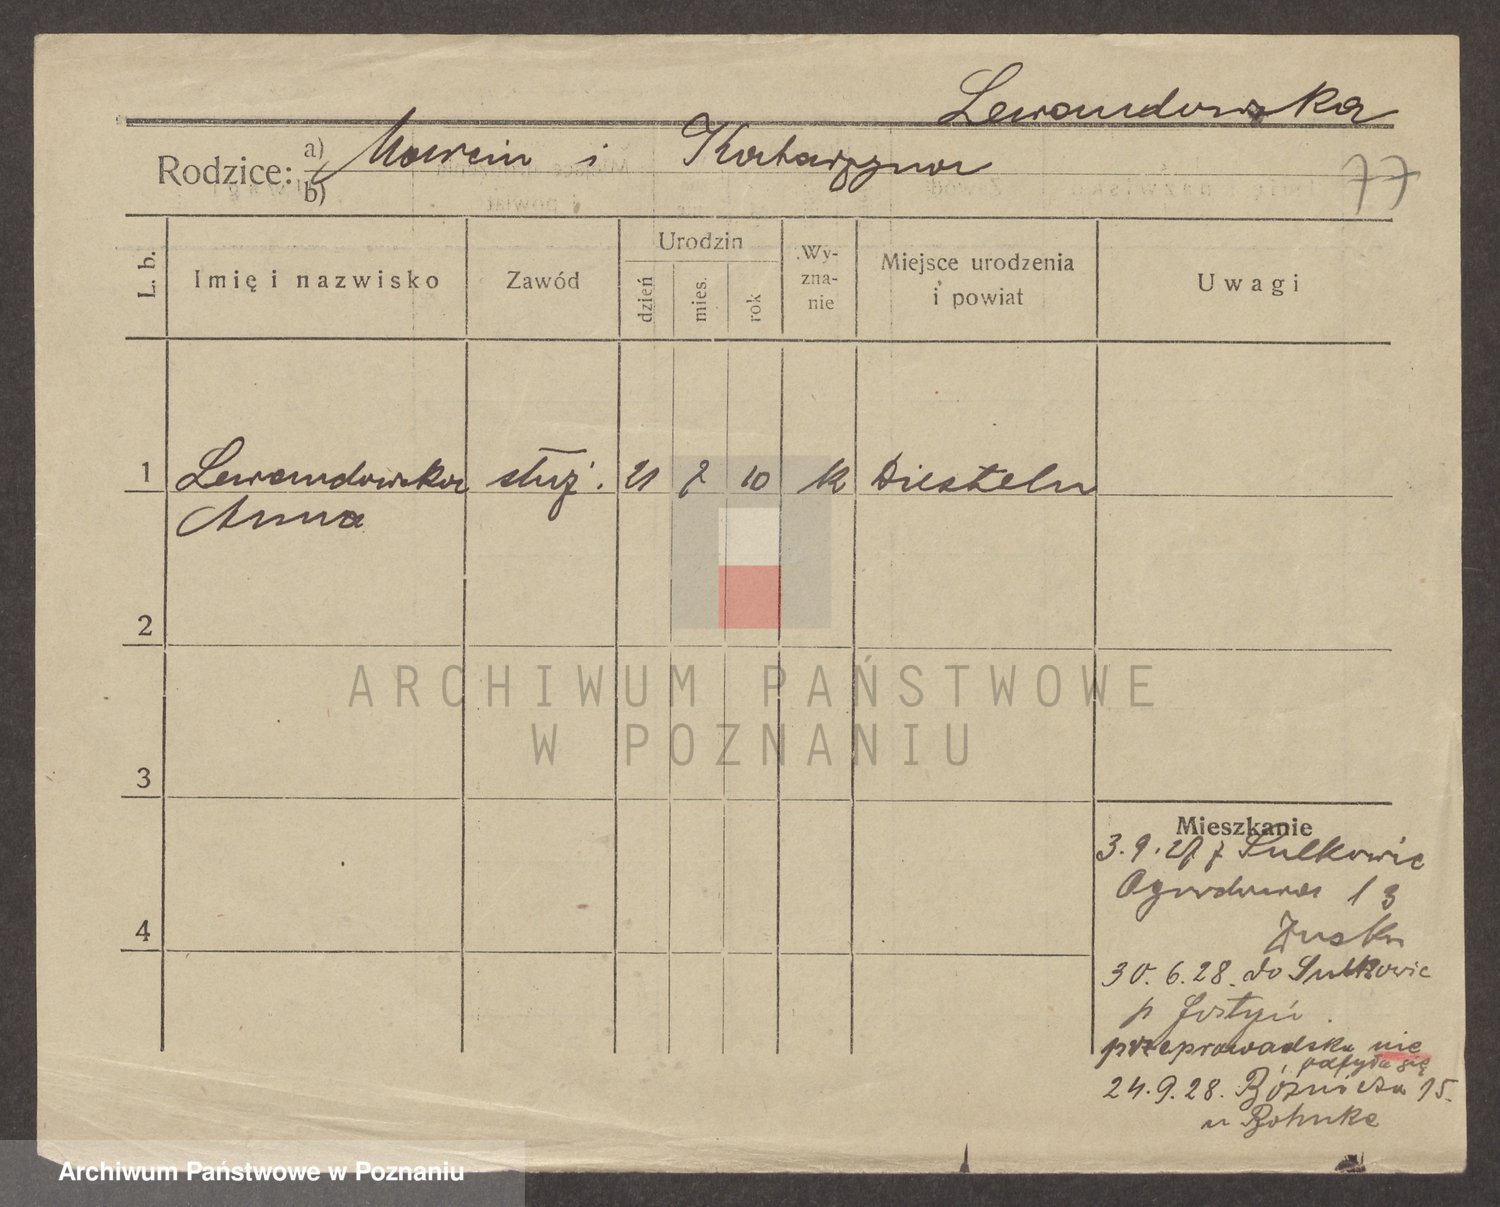 Lewandowska
Rodzice: a) Marcin i Katarzyna
b)
77
L. b.
Imię i nazwisko
Zawód
Urodzin
dzień
mies.
rok
Wy-
zna-
nie
Miejsce urodzenia
i powiat
Uwagi
1 Lewandowska służ. 21 7 10 k Diesteln
Anna
2
ARCHIWUM PAŃSTWOWE
W POZNANIU
3
Mieszkanie
3.9.27 z Sulkowic
Ogrodowa 13
4
30.6.28. do Sulkowic
p Gostyń.
przeprowadzka nie
odbyła się
24.9.28. Bóżnicza 15.
u Bohnke
Archiwum Państwowe w Poznaniu